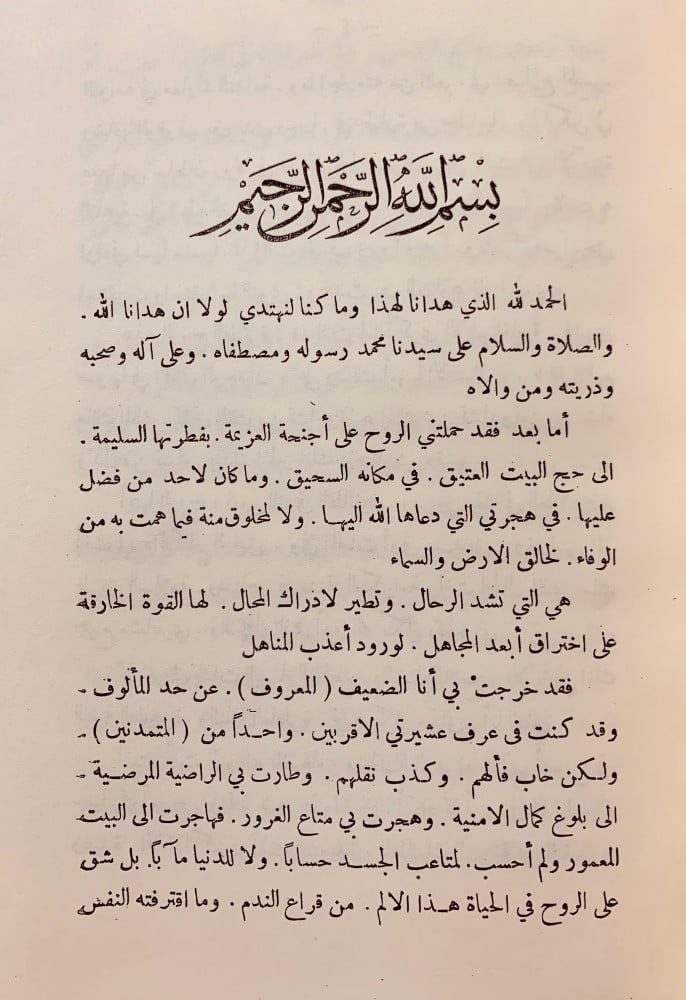 بِسْمِ اللَّهِ الرَّحْمَنِ الرَّحِيمِ
الحمد لله الذي هدانا لهذا وما كنا لنهتدي لولا ان هدانا الله .
والصلاة والسلام على سيدنا محمد رسوله ومصطفاه . وعلى آله وصحبه
وذريته ومن والاه
أما بعد فقد حملتني الروح على أجنحة العزيمة . بفطرتها السليمة .
الى حج البيت العتيق . في مكانه السحيق . وما كان لاحد من فضل
عليها . في هجرتي التي دعاها الله اليهـا . ولا لمخلوق منة فيما همت به من
الوفاء . لخالق الارض والسماء
هي التي تشد الرحال . وتطير لادراك المحال . لها القوة الخارقة
على اختراق أبعد المجاهل . لورود أعذب المناهل
فقد خرجتْ بي أنا الضعيف ( المعروف ) . عن حد المألوف .
وقد كنت فى عرف عشيرتي الاقربين . واحـداً من ( المتمدنين ) .
ولـكن خاب فألهم . وكذب نقلهم . وطارت بي الراضية المرضـية .
الى بلوغ كمال الامنية . وهجرت بي متاع الغرور . فهاجرت الى البيت
المعمور ولم أحسب . لمتاعب الجسـد حساباً . ولا للدنيا مآباً . بل شق
على الروح في الحياة هـذا الالم . من قراع الندم . وما اقترفته النفس